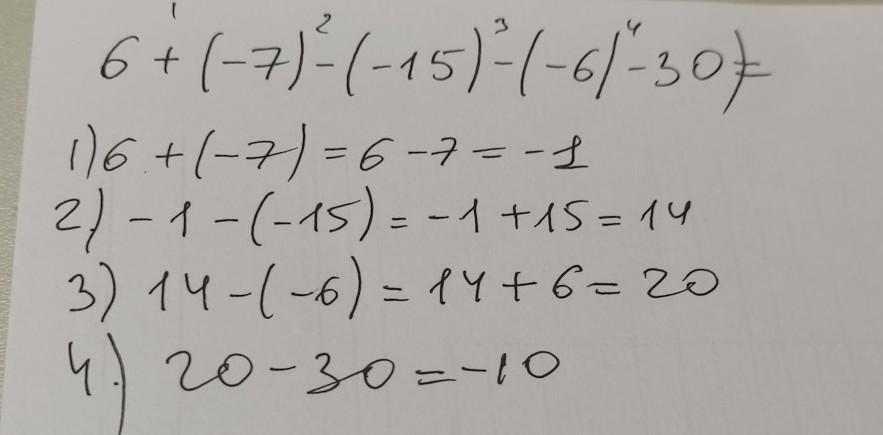 1 2 3 4
6 + (-7) - (-15) - (-6) - 30) =
1) 6 + (-7) = 6 - 7 = -1
2) -1 - (-15) = -1 + 15 = 14
3) 14 - (-6) = 14 + 6 = 20
4.) 20 - 30 = -10